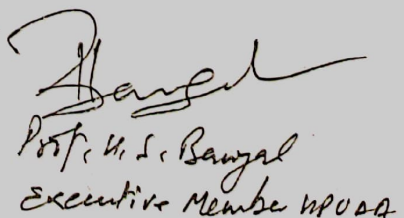 Prof. H. S. Banyal
Executive Member HPUAA